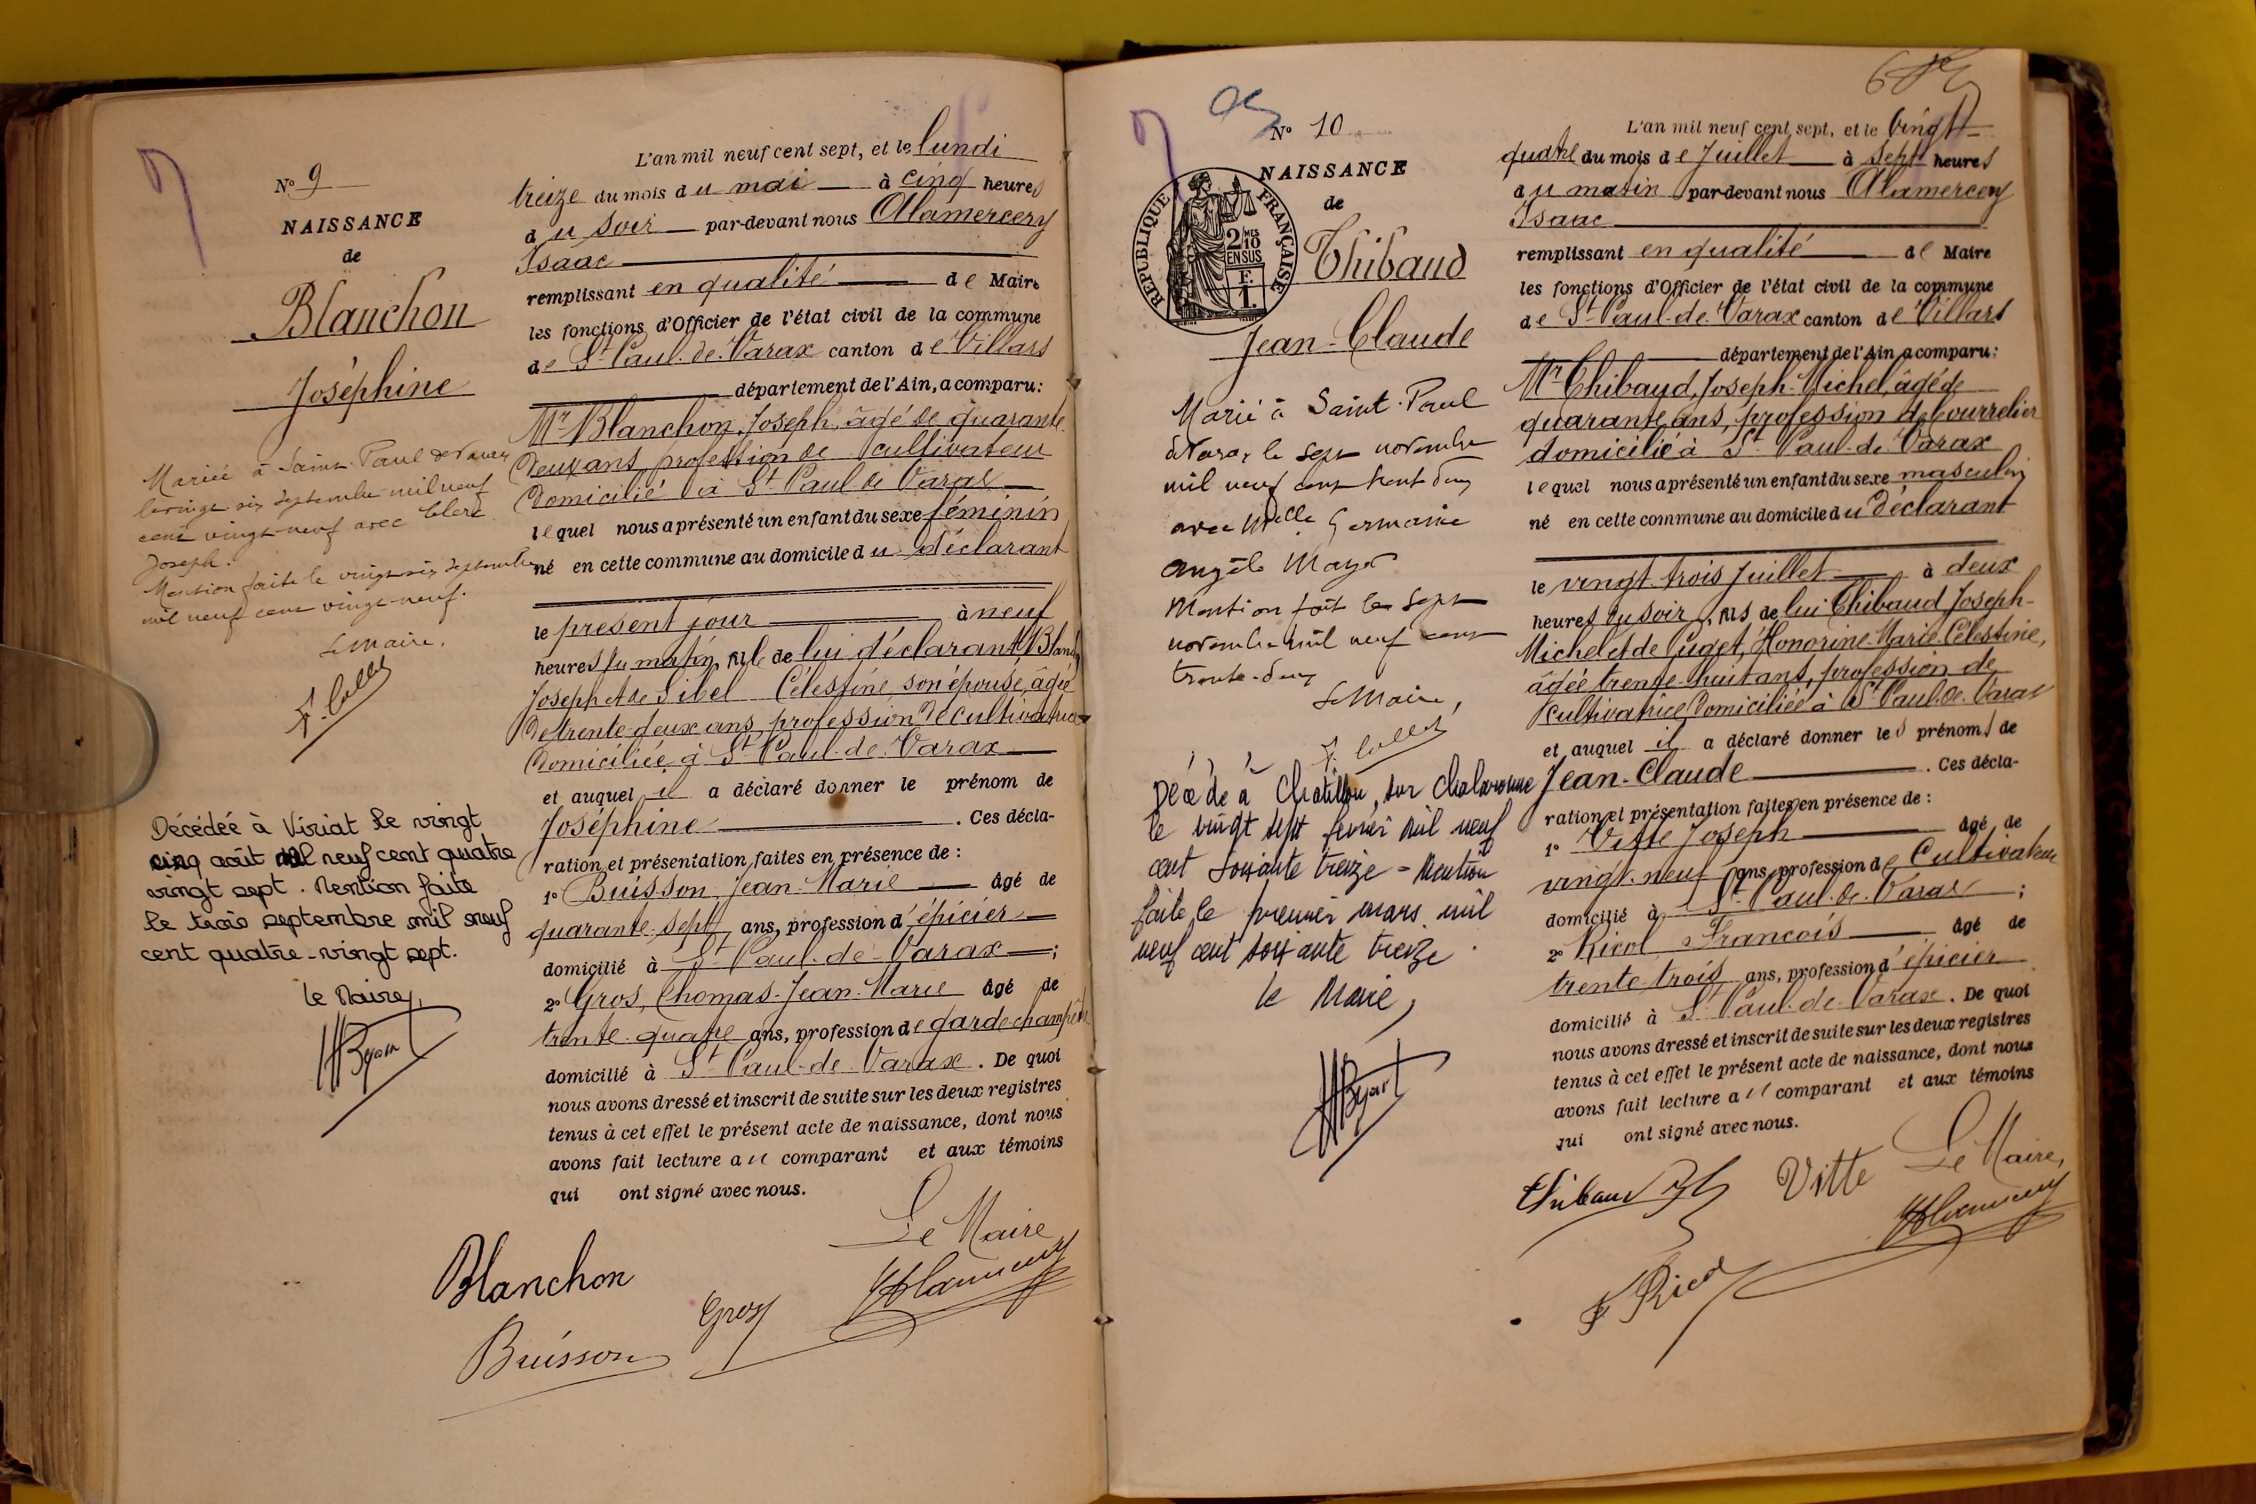 N° 9
NAISSANCE
de
Blanchon
Joséphine
Mariée à Saint Paul de Varax
le vingt six septembre mil neuf
cent vingt-neuf avec Clerc
Joseph.
Mention faite le vingt six septembre
mil neuf cent vingt-neuf.
Le Maire.
Décédée à Viriat le vingt
cinq août mil neuf cent quatre
vingt sept. Mention faite
le trois septembre mil neuf
cent quatre-vingt sept.
Le Maire,
L'an mil neuf cent sept, et le lundi
treize du mois de mai à cinq heures
du soir par-devant nous Alamercery
Isaac
remplissant en qualité de Maire
les fonctions d'Officier de l'état civil de la commune
de St Paul-de-Varax canton de Villars
département de l'Ain, a comparu:
Mr Blanchon, Joseph, âgé de quarante
deux ans, profession de cultivateur
domicilié à St Paul de Varax
lequel nous a présenté un enfant du sexe féminin
né en cette commune au domicile du déclarant
le présent jour à neuf
heures du matin, fille de lui déclarant Blanchon
Joseph et de Sibel Célestine son épouse, âgée
de trente-deux ans, profession de cultivatrice
domiciliée à St Paul-de-Varax
et auquel il a déclaré donner le prénom de
Joséphine . Ces décla-
ration et présentation faites en présence de :
1° Buisson, Jean-Marie âgé de
quarante-sept ans, profession d'épicier
domicilié à St Paul-de-Varax ;
2° Gros, Thomas-Jean-Marie âgé de
trente-quatre ans, profession de garde champêtre
domicilié à St Paul-de-Varax . De quoi
nous avons dressé et inscrit de suite sur les deux registres
tenus à cet effet le présent acte de naissance, dont nous
avons fait lecture au comparant et aux témoins
qui ont signé avec nous.
Le Maire
Blanchon
Gros
Buisson
N° 10
NAISSANCE
de
RÉPUBLIQUE FRANÇAISE
2/10 MES
EN SUS
F.
1.
Thibaud
Jean-Claude
Marié à Saint-Paul
de Varax le sept novembre
mil neuf cent trente deux
avec Melle Germaine
Angèle Mayer
Mention faite le sept
novembre mil neuf cent
trente-deux
Le Maire,
Décédé à Chatillon sur Chalaronne
le vingt sept fevrier mil neuf
cent soixante treize - Mention
faite le premier mars mil
neuf cent soixante treize.
Le Maire,
L'an mil neuf cent sept, et le vingt
quatre du mois de Juillet à sept heures
du matin par-devant nous Alamercery
Isaac
remplissant en qualité de Maire
les fonctions d'Officier de l'état civil de la commune
de St Paul-de-Varax canton de Villars
département de l'Ain, a comparu:
Mr Thibaud, Joseph-Michel, âgé de
quarante ans, profession de bourrelier
domicilié à St Paul-de-Varax
lequel nous a présenté un enfant du sexe masculin
né en cette commune au domicile du déclarant
le vingt-trois Juillet à deux
heures du soir, fils de lui Thibaud Joseph-
Michel et de Puget, Honorine-Marie-Célestine,
âgée trente-huit ans, profession de
cultivatrice domiciliée à St Paul-de-Varax
et auquel il a déclaré donner les prénoms de
Jean-Claude . Ces décla-
ration et présentation faites en présence de :
1° Vitte Joseph âgé de
vingt-neuf ans, profession de Cultivateur
domicilié à St Paul-de-Varax ;
2° Ricol François âgé de
trente-trois ans, profession d'épicier
domicilié à St Paul-de-Varax . De quoi
nous avons dressé et inscrit de suite sur les deux registres
tenus à cet effet le présent acte de naissance, dont nous
avons fait lecture au comparant et aux témoins
qui ont signé avec nous.
Le Maire,
Thibaud
Vitte
F Ricol